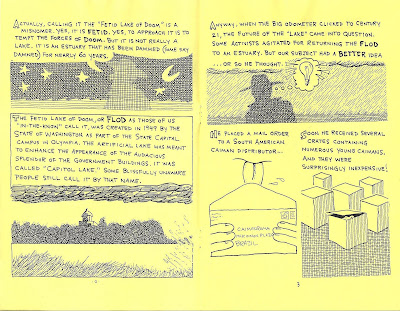 ACTUALLY, CALLING IT THE "FETID LAKE OF DOOM," IS A
MISNOMER. YES, IT IS FETID. YES, TO APPROACH IT IS TO
TEMPT THE FORCES OF DOOM. BUT IT IS NOT REALLY A
LAKE. IT IS AN ESTUARY THAT HAS BEEN DAMMED (SOME SAY
DAMNED) FOR NEARLY 60 YEARS.
THE FETID LAKE OF DOOM, OR FLOD AS THOSE OF US
"IN-THE-KNOW" CALL IT, WAS CREATED IN 1949 BY THE
STATE OF WASHINGTON AS PART OF THE STATE CAPITAL
CAMPUS IN OLYMPIA. THE ARTIFICIAL LAKE WAS MEANT
TO ENHANCE THE APPEARANCE OF THE AUDACIOUS
SPLENDOR OF THE GOVERNMENT BUILDINGS. IT WAS
CALLED "CAPITOL LAKE." SOME BLISSFULLY UNAWARE
PEOPLE STILL CALL IT BY THAT NAME.
ANYWAY, WHEN THE BIG ODOMETER CLICKED TO CENTURY
21, THE FUTURE OF THE "LAKE" CAME INTO QUESTION.
SOME ACTIVISTS AGITATED FOR RETURNING THE FLOD
TO AN ESTUARY. BUT OUR SUBJECT HAD A BETTER IDEA
... OR SO HE THOUGHT.
HE PLACED A MAIL ORDER
TO A SOUTH AMERICAN
CAIMAN DISTRIBUTOR...
CAIMANORAMA
BRASIL
SOON HE RECEIVED SEVERAL
CRATES CONTAINING
NUMEROUS YOUNG CAIMANS,
AND THEY WERE
SURPRISINGLY INEXPENSIVE!
3